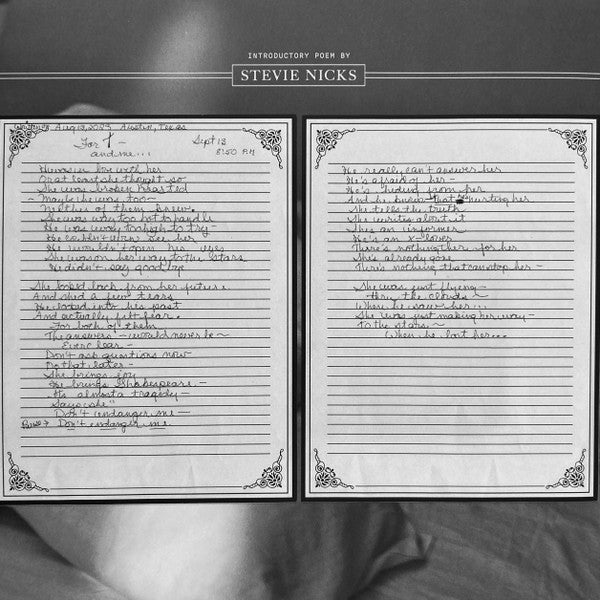 INTRODUCTORY POEM BY
STEVIE NICKS
Written Aug 13, 2023 Austin, Texas
For T —
and me...
Sept 13
8:50 PM
He was in love with her
Or at least she thought so
She was broken hearted
~ Maybe he was too ~
Neither of them knew
She was way too hot to handle
He was way too high to try —
He couldn't even see her
He wouldn't open his eyes
She was on her way to the stars
He didn't say goodbye
She looked back from her future
And shed a few tears
He looked into his past
And actually felt fear.
For both of them
The answers — would never be ~
Ever clear —
Don't ask questions now
Do that later —
She brings joy
He brings Shakespeare —
It's almost a tragedy —
Says she"
Don't endanger me —
Don't endanger me
He really can't answer her
He's afraid of her —
He's hiding from her
And he knows that he's hurting her
She tells the truth
She writes about it
She's an informer
He's an x-lover
There's nothing there for her
She's already gone
There's nothing that can stop her —
She was just flying —
thru the clouds ~
When he saw her...
She was just making her way —
to the stars ~
When he lost her...